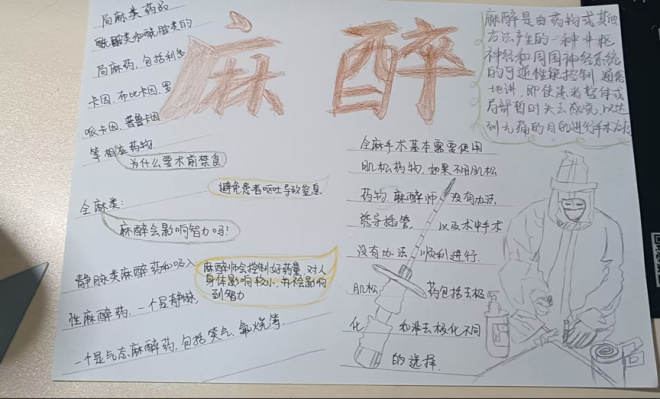 麻醉
局麻类药品
酰胺类和酯胺类的
局麻药，包括利多
卡因、布比卡因、罗
哌卡因、普鲁卡因
等相应药物
为什么要术前禁食
避免患者呕吐导致窒息
全麻类：
麻醉会影响智力吗？
静脉类麻醉药和吸入
性麻醉药，一个是静脉，
一个是气态麻醉药，包括笑气、氟烷等.
麻醉师会控制好药量，对人
身体影响较小，并不会影响
到智力
麻醉是由药物或其他
方法产生的一种中枢
神经和周围神经系统
的可逆性抑制，通俗
地讲，即使患者整体或
局部暂时失去感觉，以达
到无痛的目的进行手术治疗
全麻手术基本需要使用
肌松药物，如果不用肌松
药物，麻醉师没有办法
插导插管，以及术中手术
没有办法顺利进行.
肌松药包括去极
化和非去极化不同
的选择.